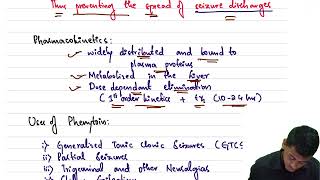 Thus preventing the spread of seizure discharges
Pharmacokinetics:
widely distributed and bound to
plasma proteins
Metabolised in the liver
Dose dependent elimination
(1st order kinetics + t½ (10-24 hr)
Uses of Phenytoin:
i) Generalised Tonic Clonic Seizures (GTCS
ii) Partial Seizures
iii) Trigeminal and other Neuralgias